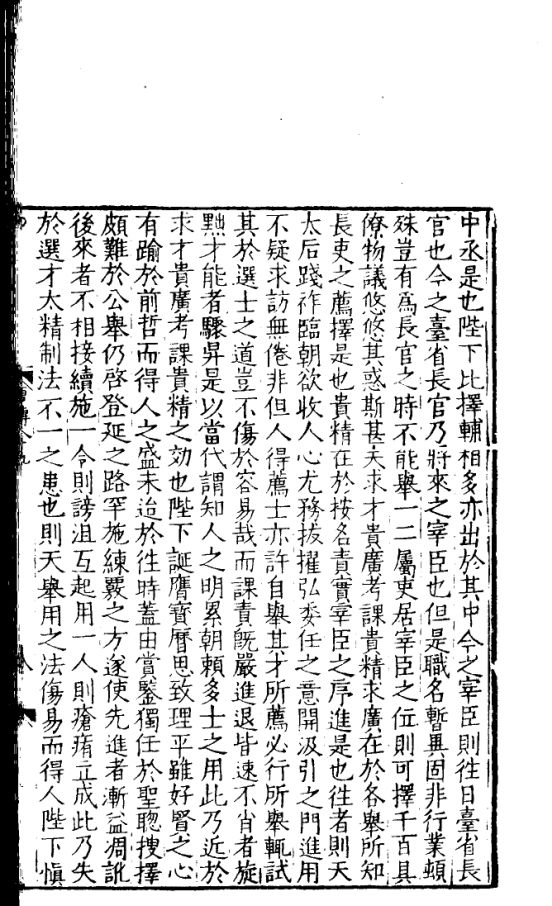 中丞是也陛下比擇輔相多亦出於其中今之宰臣則徃日臺省長
官也今之臺省長官乃將來之宰臣也但是職名暫異固非行業頓
殊豈有爲長官之時不能舉一二屬吏居宰臣之位則可擇千百具
僚物議悠悠其惑斯甚夫求才貴廣考課貴精求廣在於各舉所知
長吏之薦擇是也貴精在於按名責實宰臣之序進是也徃者則天
太后踐祚臨朝欲收人心尤務拔擢弘委任之意開汲引之門進用
不疑求訪無倦非但人得薦士亦許自舉其才所薦必行所舉輒試
其於選士之道豈不傷於容易哉而課責旣嚴進退皆速不肖者旋
黜才能者驟昇是以當代謂知人之明累朝賴多士之用此乃近於
求才貴廣考課貴精之効也陛下誕膺寶曆思致理平雖好賢之心
有踰於前哲而得人之盛未迨於徃時蓋由賞鑒獨任於聖聰搜擇
頗難於公舉仍啓登延之路罕施練覈之方遂使先進者漸益凋訛
後來者不相接續施一令則謗沮互起用一人則瘡痏立成此乃失
於選才太精制法不一之患也則天舉用之法傷易而得人陛下愼